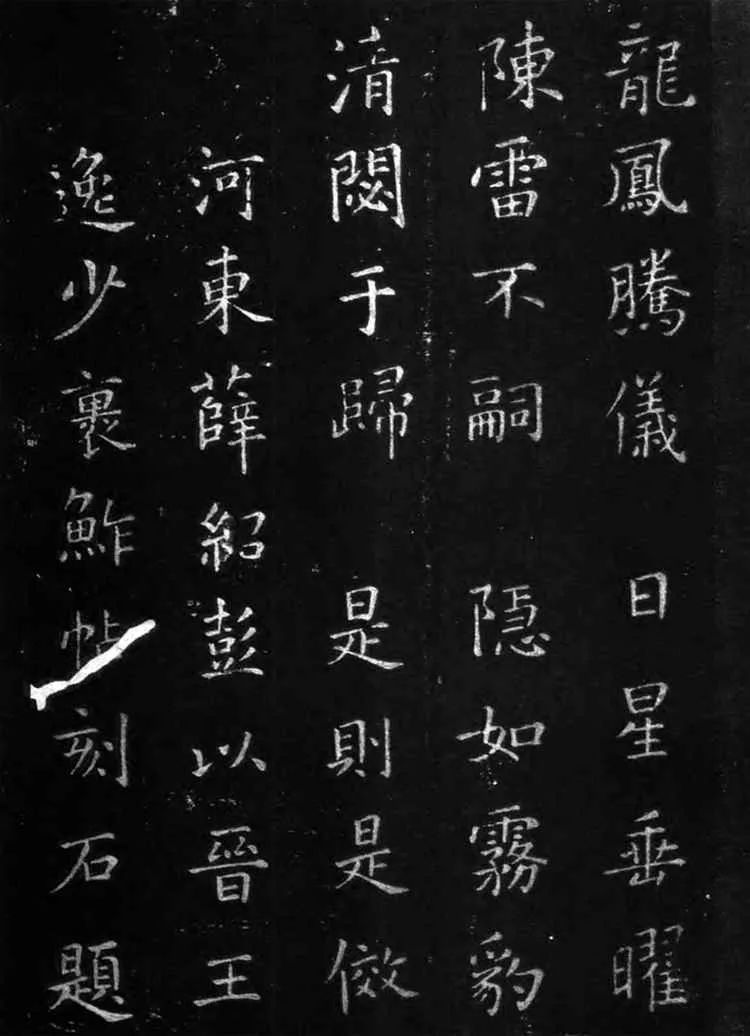 龍鳳騰儀 日星垂曜
陳雷不嗣 隠如霧豹
清閟于歸 是則是傚
河東薛紹彭以晉王
逸少裹鮓帖刻石題